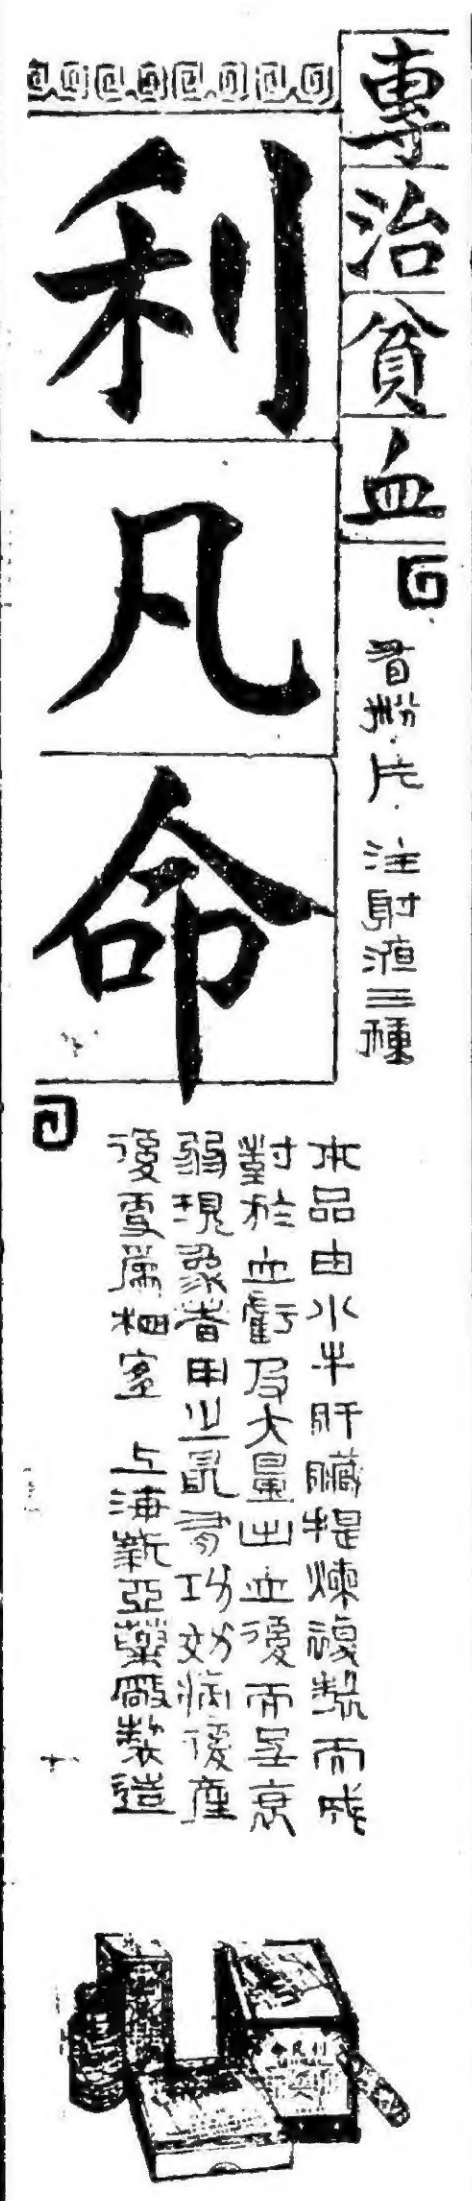 專治貧血
利凡命
有粉．片．注射液三種
本品由水牛肝臟提煉複製而成
對於血虧及大量出血後而呈衰
弱現象者用之最有功效病後產
後更屬相宜　上海新亞藥廠製造